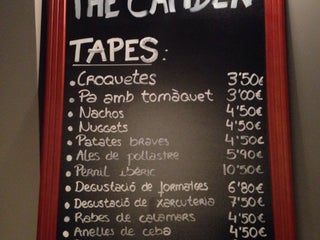 THE CAMDEN
TAPES:
• CROQUETES 3'50€
• Pa amb tomàquet 3'00€
• Nachos 4'50€
• Nuggets 4'50€
• Patates braves 4'50€
• Ales de pollastre 5'90€
• Pernil ibèric 10'50€
• Degustació de formatges 6'80€
• Degustació de xarcuteria 7'50€
• Rabes de calamars 4'50€
• Anelles de ceba 4'50€